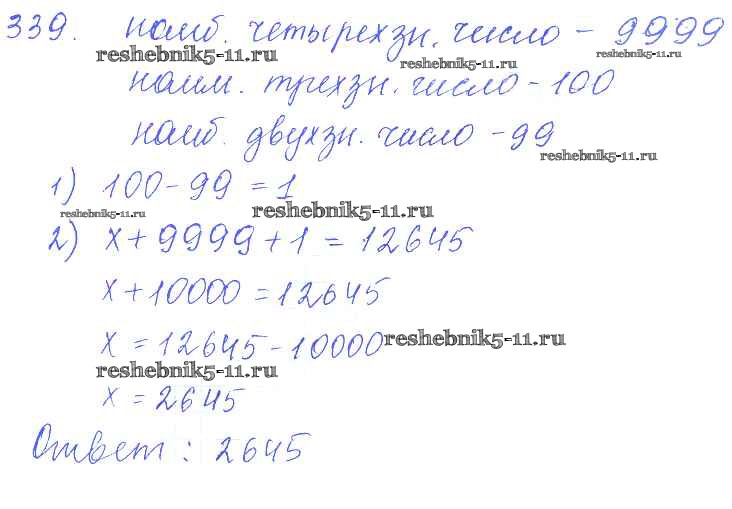 339. наиб. четырехзн. число - 9999
reshebnik5-11.ru reshebnik5-11.ru reshebnik5-11.ru
наим. трехзн. число - 100
наиб. двухзн. число - 99
reshebnik5-11.ru
1) 100 - 99 = 1
reshebnik5-11.ru reshebnik5-11.ru
2) x + 9999 + 1 = 12645
x + 10000 = 12645
x = 12645 - 10000 reshebnik5-11.ru
reshebnik5-11.ru
x = 2645
Ответ : 2645